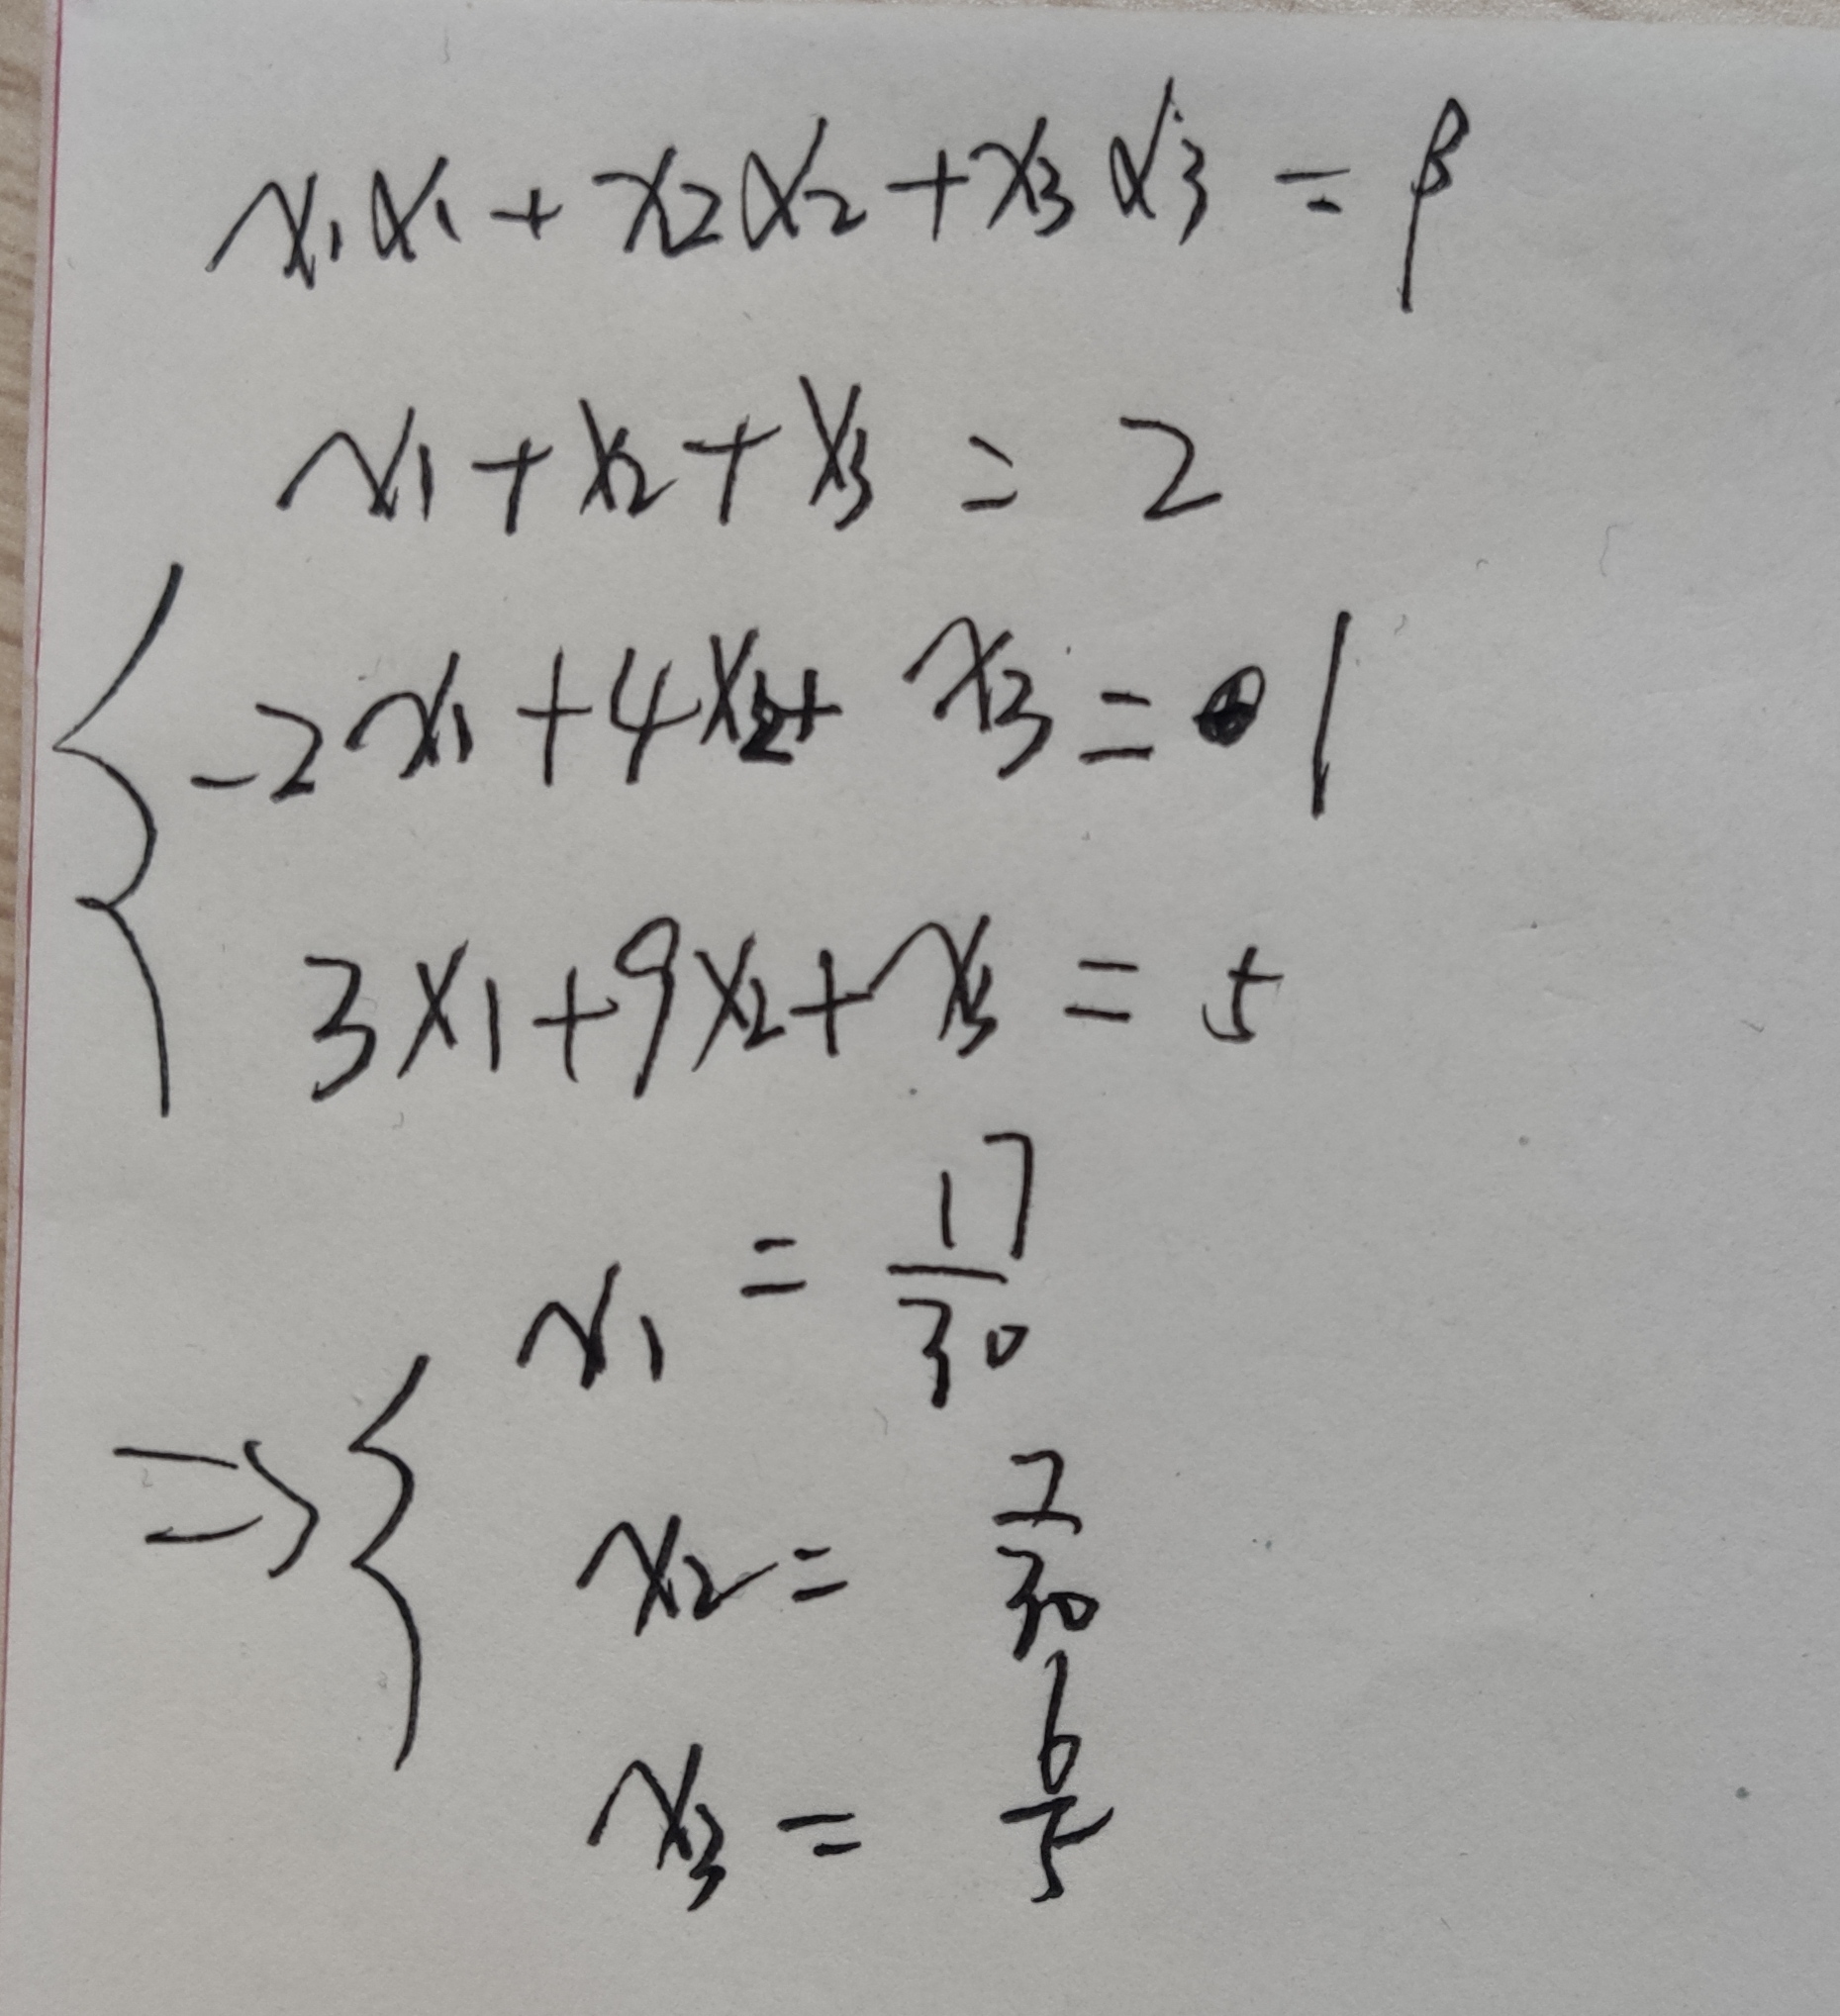 x₁α₁ + x₂α₂ + x₃α₃ = β
x₁ + x₂ + x₃ = 2
-2x₁ + 4x₂ + x₃ = 1
3x₁ + 9x₂ + x₃ = 5
x₁ = 17/30
⇒ x₂ = 7/30
x₃ = 6/5